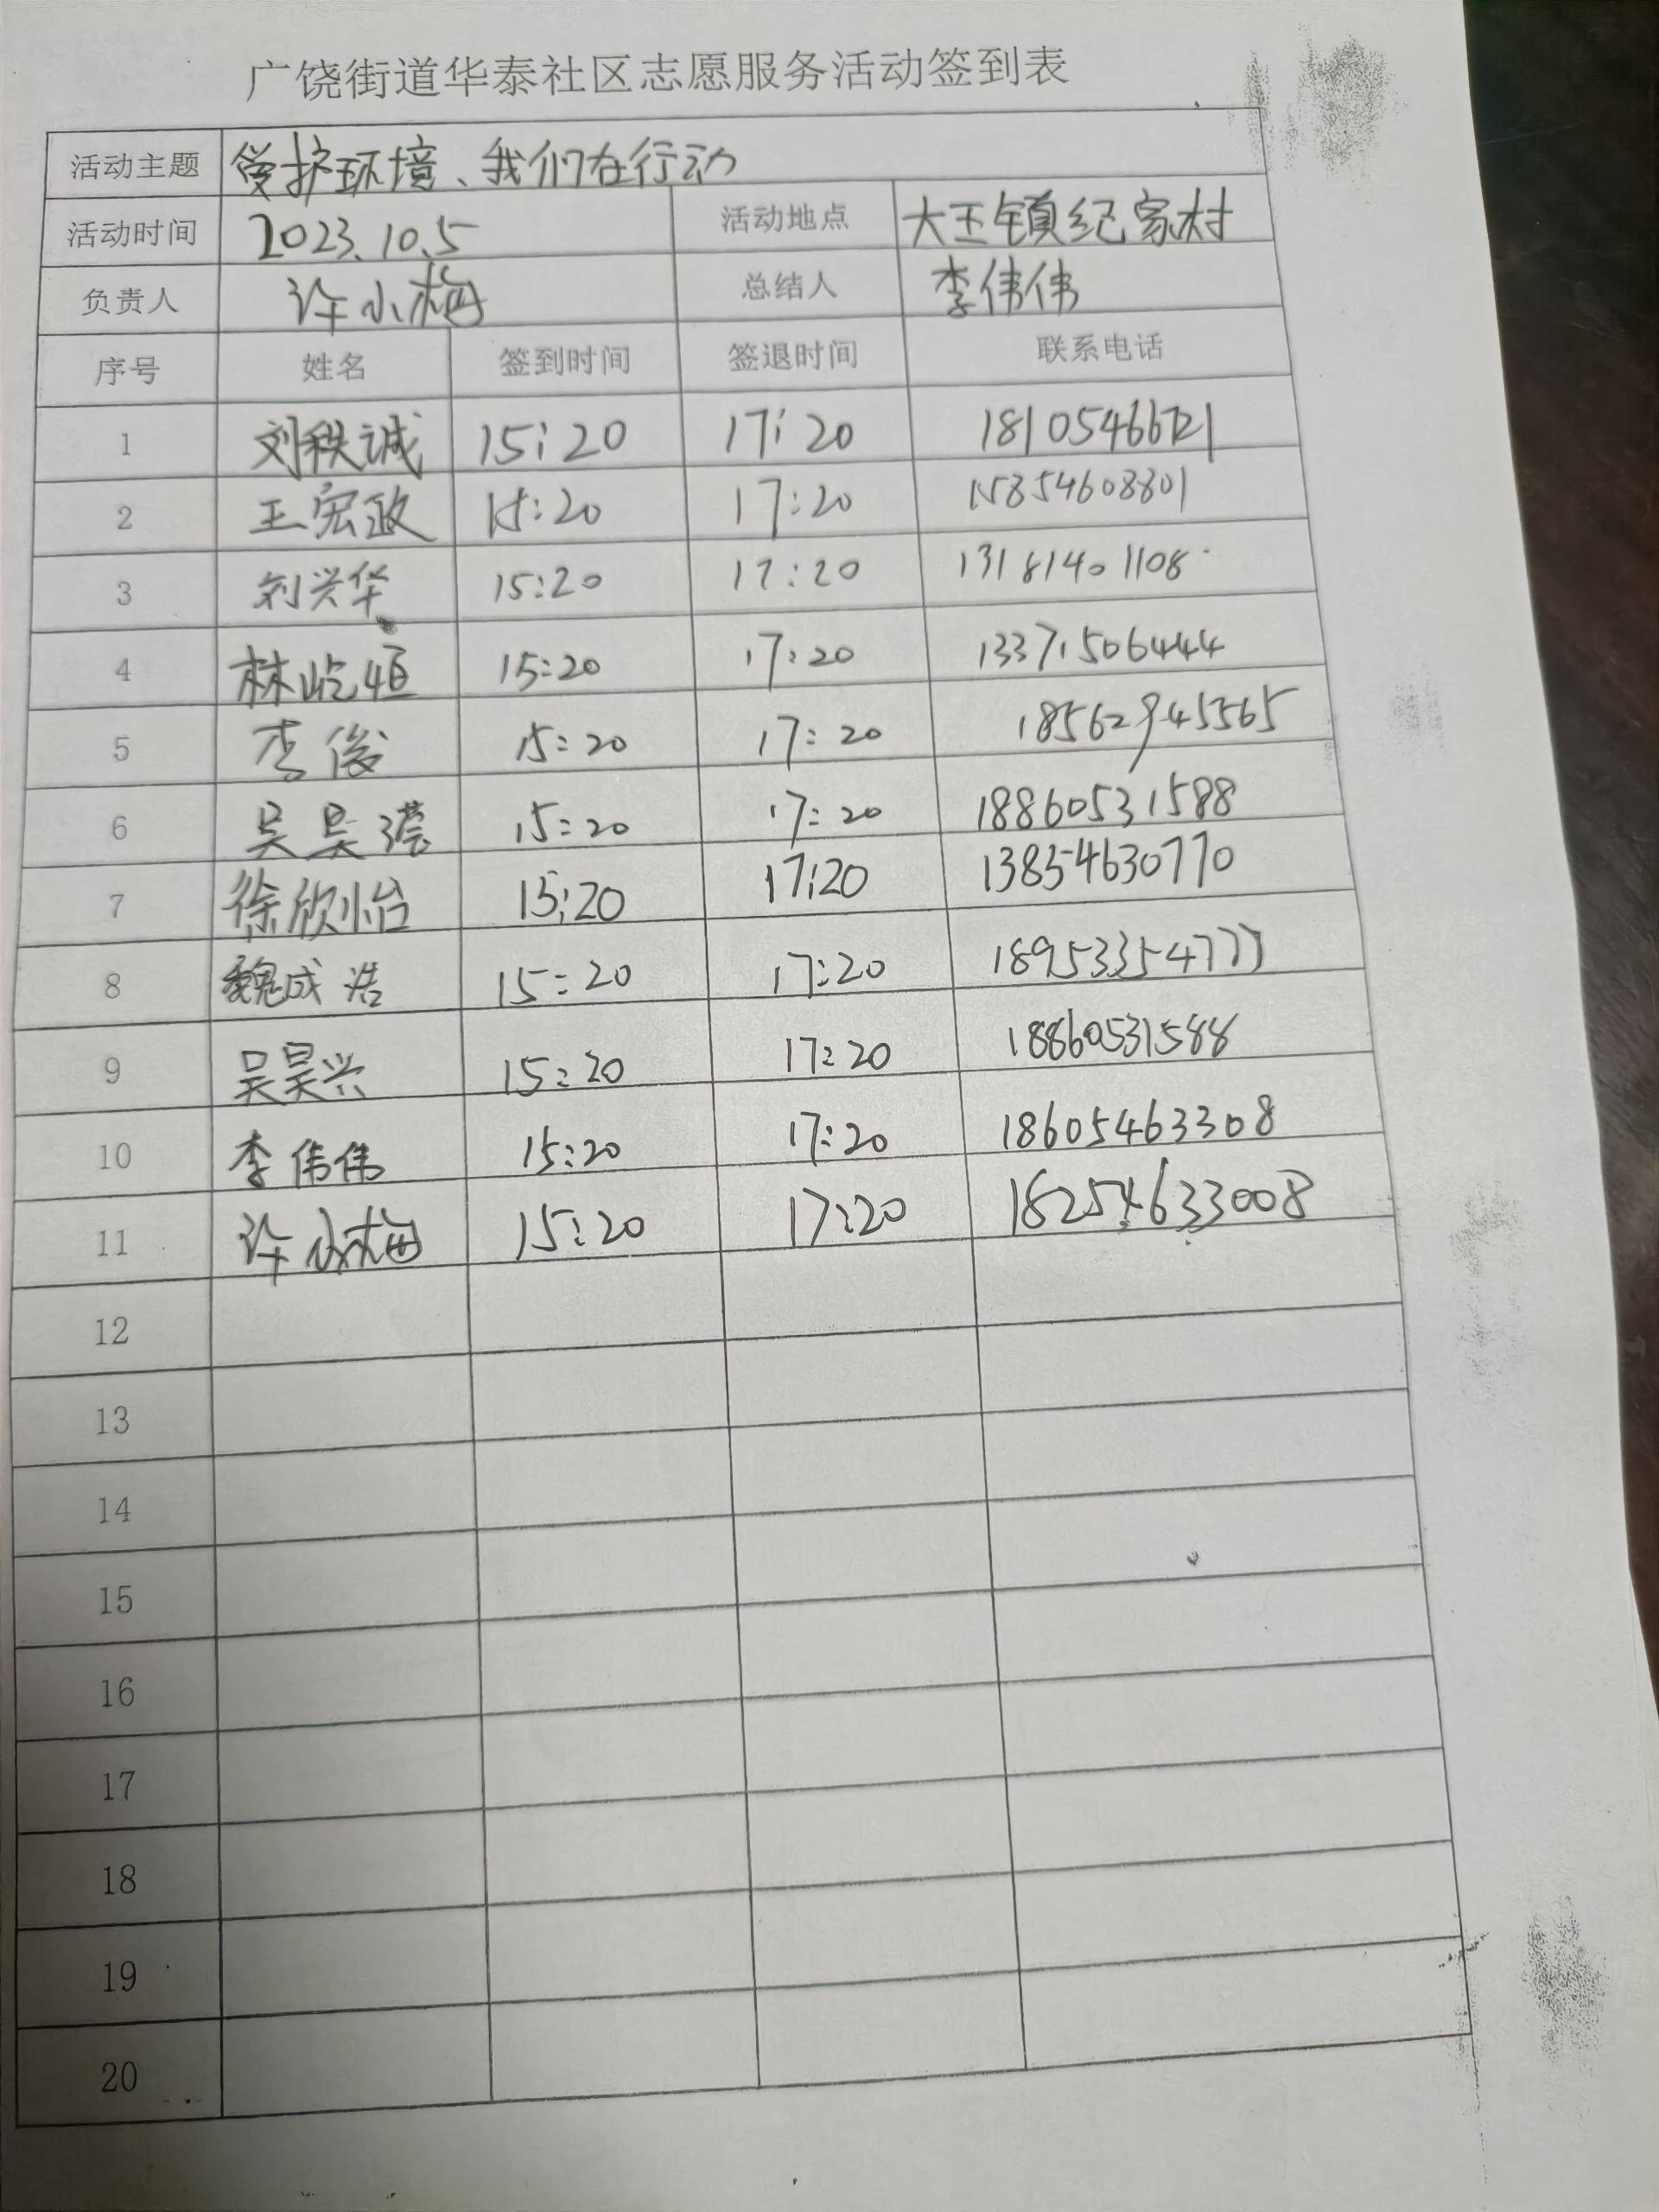 广饶街道华泰社区志愿服务活动签到表
活动主题 爱护环境、我们在行动
活动时间 2023.10.5 活动地点 大王镇纪家村
负责人 许小梅 总结人 李伟伟
序号 姓名 签到时间 签退时间 联系电话
1 刘秩诚 15:20 17:20 18105466721
2 王宏政 15:20 17:20 15854608801
3 刘兴华 15:20 17:20 13181401108
4 林屹恒 15:20 17:20 13371506444
5 李俊 15:20 17:20 18562945565
6 吴昊滢 15:20 17:20 18860531588
7 徐欣怡 15:20 17:20 13854630770
8 魏成浩 15:20 17:20 18953354777
9 吴昊兴 15:20 17:20 18860531588
10 李伟伟 15:20 17:20 18605463308
11 许小梅 15:20 17:20 18254633008
12
13
14
15
16
17
18
19
20